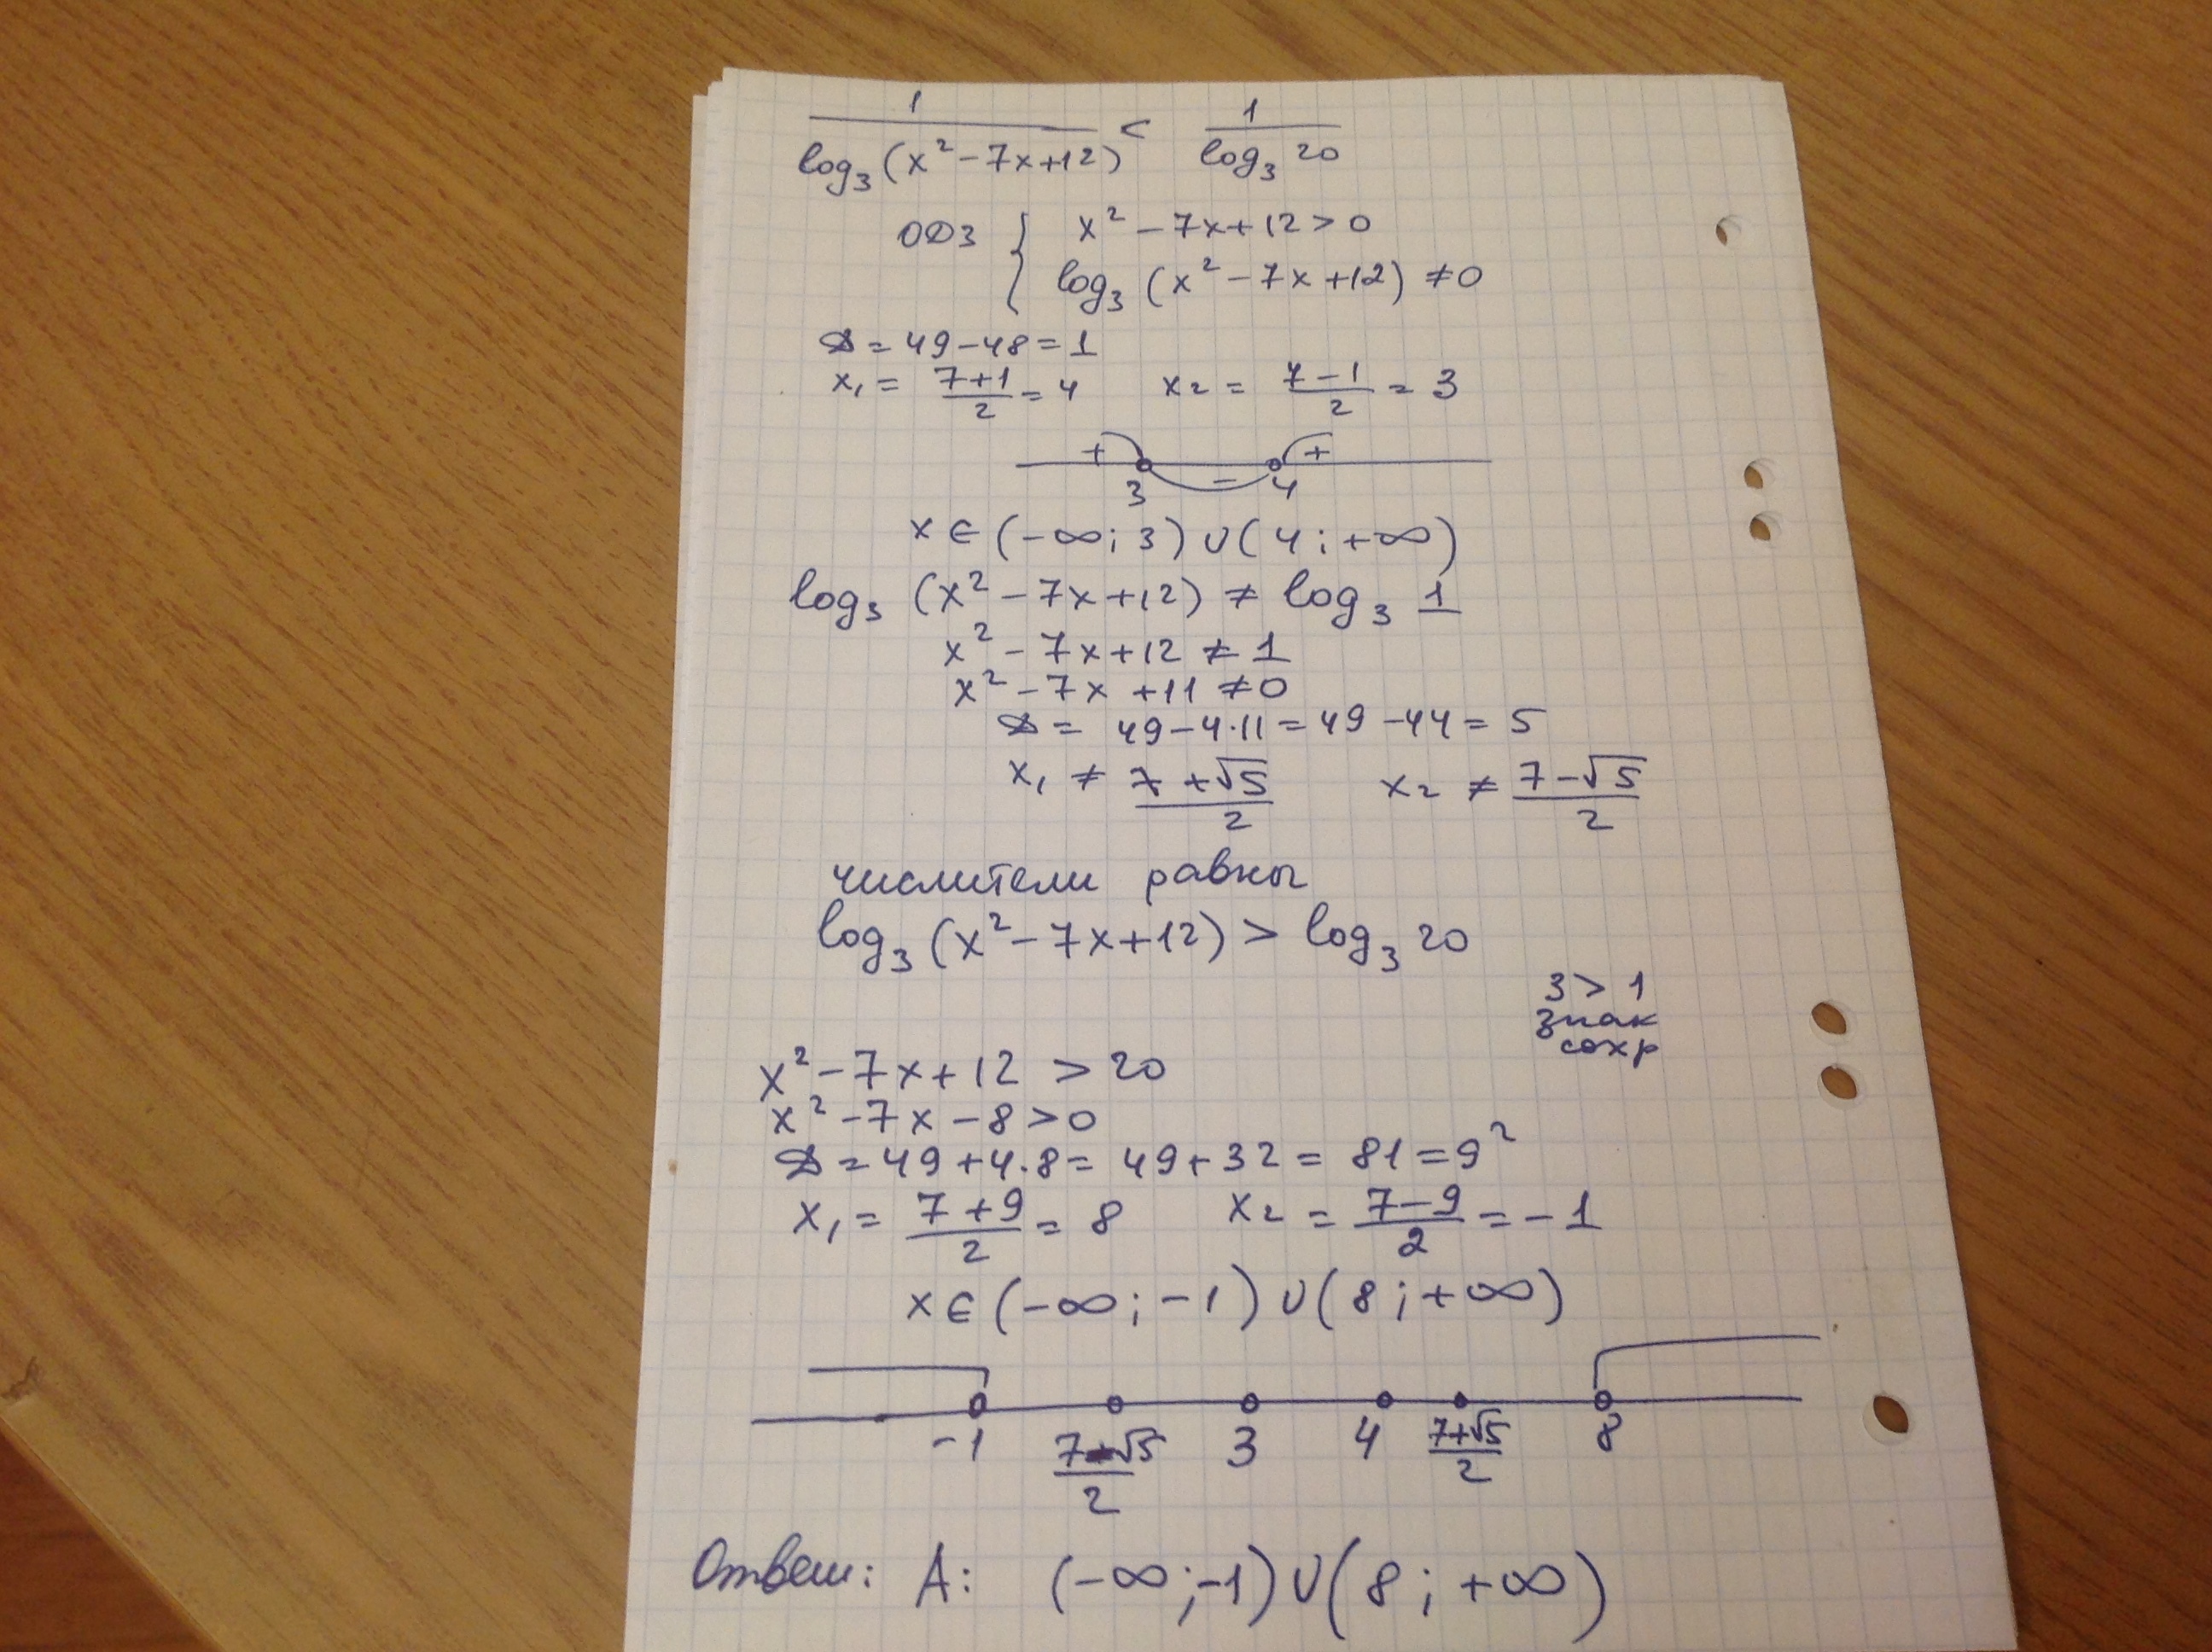 1/log₃(x²-7x+12) < 1/log₃ 20
ОДЗ { x²-7x+12>0
log₃(x²-7x+12) ≠0
D = 49-48=1
x₁ = (7+1)/2 = 4   x₂ = (7-1)/2 = 3
+ 3 - 4 +
x ∈ (-∞; 3) ∪ (4; +∞)
log₃ (x²-7x+12) ≠ log₃ 1
x²-7x+12 ≠ 1
x²-7x+11 ≠0
D = 49-4·11 = 49-44 = 5
x₁ ≠ (7+√5)/2   x₂ ≠ (7-√5)/2
числители равны
log₃(x²-7x+12) > log₃ 20
3 > 1
знак
сохр
x²-7x+12 > 20
x²-7x-8>0
D = 49+4·8 = 49+32 = 81 = 9²
x₁ = (7+9)/2 = 8   x₂ = (7-9)/2 = -1
x ∈ (-∞; -1) ∪ (8; +∞)
-1   (7-√5)/2   3   4   (7+√5)/2   8
Ответ: А: (-∞;-1)∪(8; +∞)